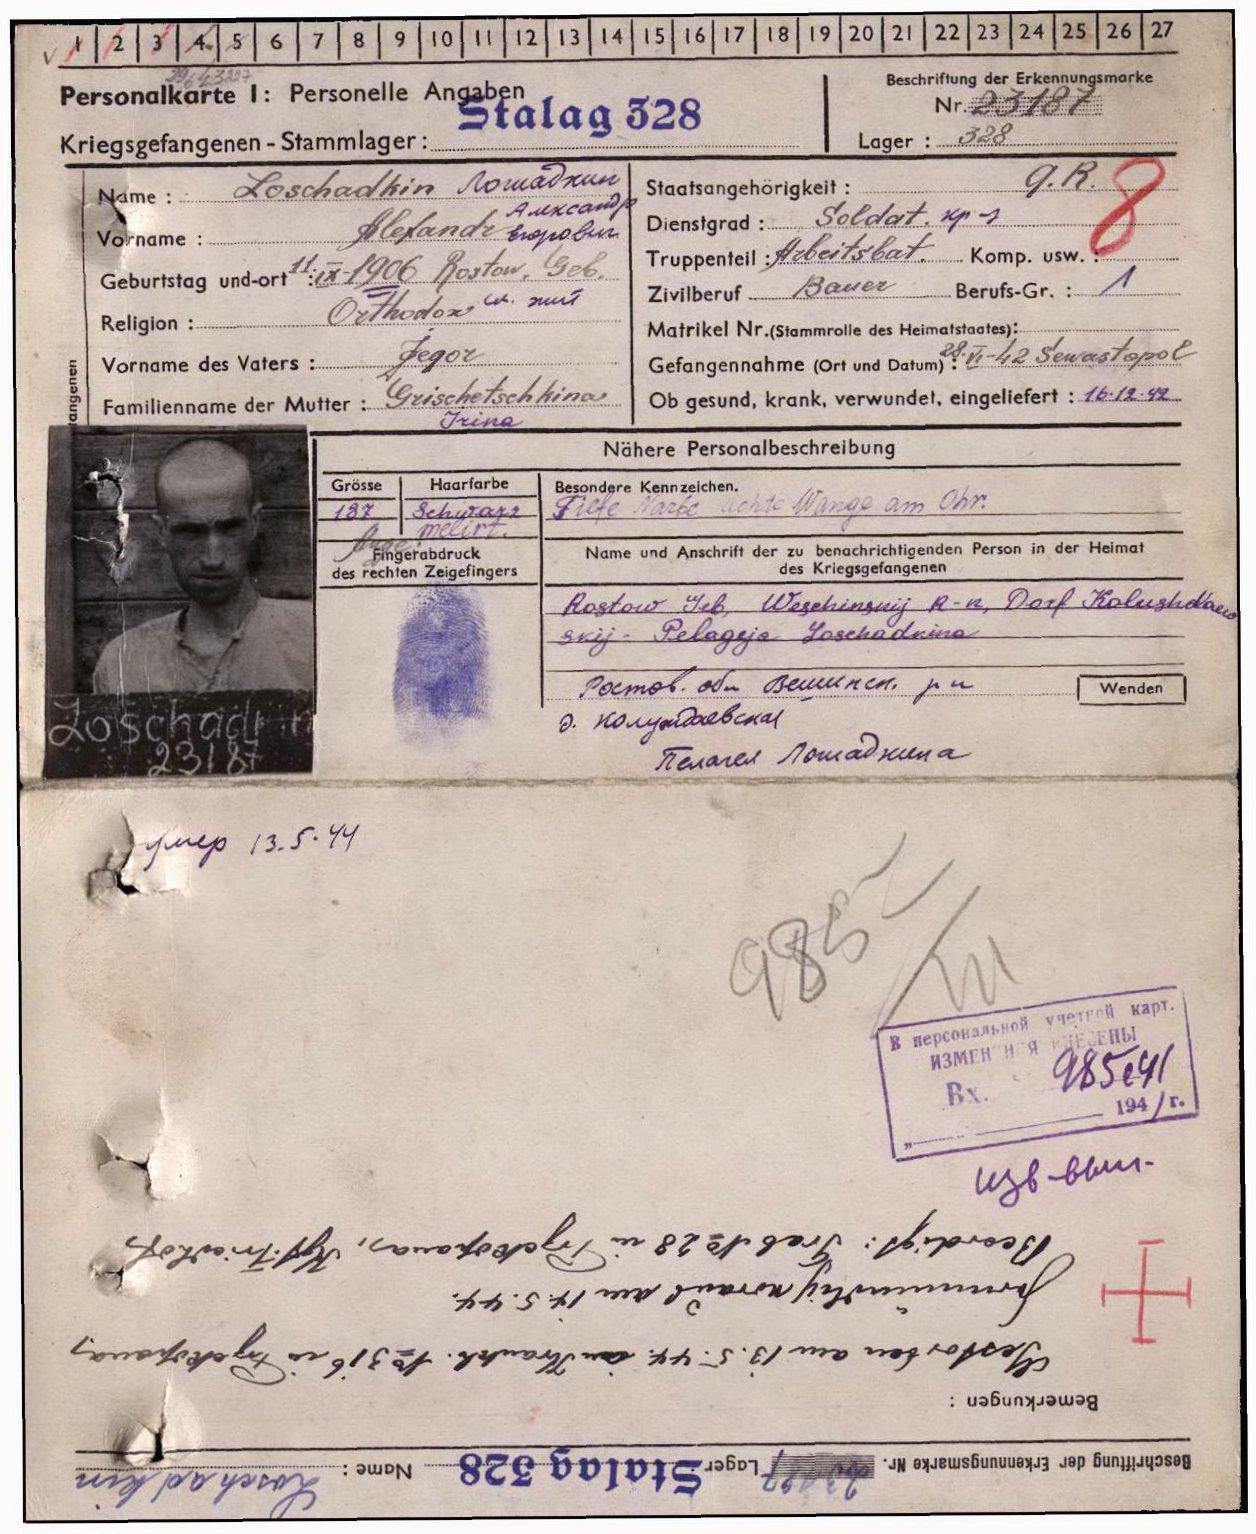 1 2 3 4 5 6 7 8 9 10 11 12 13 14 15 16 17 18 19 20 21 22 23 24 25 26 27
Personalkarte I: Personelle Angaben
Kriegsgefangenen-Stammlager: Stalag 328
Beschriftung der Erkennungsmarke
Nr. 23187
Lager: 328
Name: Loschadkin Лошадкин
Vorname: Alexandr Александр Егорович
Geburtstag und-ort: 11.IX-1906 Rostow. Geb.
Religion: Orthodox
Vorname des Vaters: Jegor
Familienname der Mutter: Grischetschkina
Irina
Staatsangehörigkeit:
8
Dienstgrad: Soldat. кр-ц
Truppenteil: Arbeitsbat. Komp. usw.:
Zivilberuf Bauer Berufs-Gr.: 1
Matrikel Nr. (Stammrolle des Heimatstaates):
Gefangennahme (Ort und Datum): 28.VI-42 Sewastopol
Ob gesund, krank, verwundet, eingeliefert: 16.12.42
angenen
Nähere Personalbeschreibung
Grösse
187
Haarfarbe
Schwarz
melirt.
Besondere Kennzeichen.
Tiefe Narbe rechte Wange am Ohr.
Fingerabdruck
des rechten Zeigefingers
Name und Anschrift der zu benachrichtigenden Person in der Heimat
des Kriegsgefangenen
Rostow Geb, Weschinskij R-n, Dorf Kalushdaew
skij- Pelageja Loschadkina
Ростов. обл Вешинск. р-н
д. Колундаевская
Пелагея Лошадкина
Wenden
Loschadkin
23187
умер 13.5.44
985
В персональной учетной карт.
ИЗМЕНЕНИЯ ВНЕСЕНЫ
Вх. 985с41
194 г.
изв-вып.
Beschriftung der Erkennungsmarke Nr. 23187 Lager Stalag 328 Name: Loschadkin
Bemerkungen:
Gestorben am 13.5.44. Krankh. № 316 in
am 14.5.44.
Beerdigt: Grab № 28 in